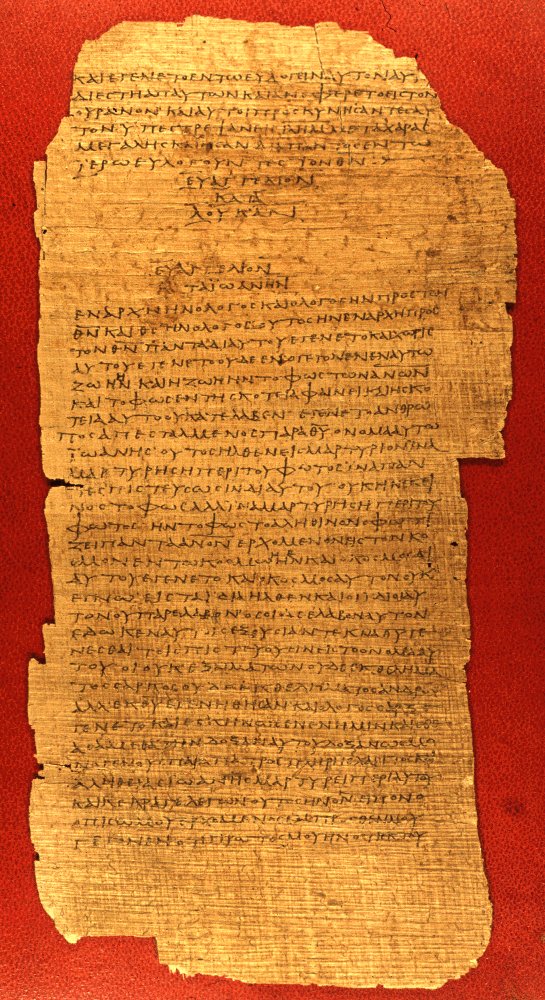 ΚΑΙΕΓΕΝΕΤΟΕΝΤΩΕΥΛΟΓΕΙΝΑΥΤΟΝΑΥ
ΔΙΕϹΤΗΑΠΑΥΤΩΝΚΑΙΑΝΕΦΕΡΕΤΟΕΙϹΤΟΝ
ΟΥΡΑΝΟΝΚΑΙΑΥΤΟΙΠΡΟϹΚΥΝΗϹΑΝΤΕϹΑΥ
ΤΟΝΥΠΕϹΤΡΕΨΑΝΕΙϹΙΗΛΗΜΜΕΤΑΧΑΡΑϹ
ΜΕΓΑΛΗϹΚΑΙΗϹΑΝΔΙΑΠΑΝΤΟϹΕΝΤΩ
ΙΕΡΩΕΥΛΟΓΟΥΝΤΕϹΤΟΝΘΝ
ΕΥΑΓΓΕΛΙΟΝ
ΚΑΤΑ
ΛΟΥΚΑΝ
ΕΥΑΓΓΕΛΙΟΝ
ΚΑΤΑΙΩΑΝΗΝ
ΕΝΑΡΧΗΗΝΟΛΟΓΟϹΚΑΙΟΛΟΓΟϹΗΝΠΡΟϹΤΟΝ
ΘΝΚΑΙΘϹΗΝΟΛΟΓΟϹΟΥΤΟϹΗΝΕΝΑΡΧΗΠΡΟϹ
ΤΟΝΘΝΠΑΝΤΑΔΙΑΥΤΟΥΕΓΕΝΕΤΟΚΑΙΧΩΡΙϹ
ΑΥΤΟΥΕΓΕΝΕΤΟΟΥΔΕΕΝΟΓΕΓΟΝΕΝΕΝΑΥΤΩ
ΖΩΗΗΝΚΑΙΗΖΩΗΗΝΤΟΦΩϹΤΩΝΑΝΩΝ
ΚΑΙΤΟΦΩϹΕΝΤΗϹΚΟΤΕΙΑΦΑΙΝΕΙΚΑΙΗϹΚΟ
ΤΕΙΑΑΥΤΟΟΥΚΑΤΕΛΑΒΕΝΕΓΕΝΕΤΟΑΝΘΡΩ
ΠΟϹΑΠΕϹΤΑΛΜΕΝΟϹΠΑΡΑΘΥΟΝΟΜΑΑΥΤΩ
ΙΩΑΝΗϹΟΥΤΟϹΗΛΘΕΝΕΙϹΜΑΡΤΥΡΙΟΝΙΝΑ
ΜΑΡΤΥΡΗϹΗΠΕΡΙΤΟΥΦΩΤΟϹΙΝΑΠΑΝ
ΤΕϹΠΙϹΤΕΥϹΩϹΙΝΔΙΑΥΤΟΥΟΥΚΗΝΕΚΕΙ
ΝΟϹΤΟΦΩϹΑΛΛΙΝΑΜΑΡΤΥΡΗϹΗΠΕΡΙΤΟΥ
ΦΩΤΟϹΗΝΤΟΦΩϹΤΟΑΛΗΘΙΝΟΝΟΦΩΤΙ
ΖΕΙΠΑΝΤΑΑΝΟΝΕΡΧΟΜΕΝΟΝΕΙϹΤΟΝΚΟ
ϹΜΟΝΕΝΤΩΚΟϹΜΩΗΝΚΑΙΟΚΟϹΜΟϹΔΙ
ΑΥΤΟΥΕΓΕΝΕΤΟΚΑΙΟΚΟϹΜΟϹΑΥΤΟΝΟΥΚ
ΕΓΝΩΕΙϹΤΑΙΔΙΑΗΛΘΕΝΚΑΙΟΙΙΔΙΟΙΑΥ
ΤΟΝΟΥΠΑΡΕΛΑΒΟΝΟϹΟΙΔΕΕΛΑΒΟΝΑΥΤΟΝ
ΕΔΩΚΕΝΑΥΤΟΙϹΕΞΟΥϹΙΑΝΤΕΚΝΑΘΥΓΕ
ΝΕϹΘΑΙΤΟΙϹΠΙϹΤΕΥΟΥϹΙΝΕΙϹΤΟΟΝΟΜΑΑΥ
ΤΟΥΟΙΟΥΚΕΞΑΙΜΑΤΩΝΟΥΔΕΕΚΘΕΛΗΜΑ
ΤΟϹϹΑΡΚΟϹΟΥΔΕΕΚΘΕΛΗΜΑΤΟϹΑΝΔΡΟϹ
ΑΛΛΕΚΘΥΕΓΕΝΝΗΘΗϹΑΝΚΑΙΟΛΟΓΟϹϹΑΡΞΕ
ΓΕΝΕΤΟΚΑΙΕϹΚΗΝΩϹΕΝΕΝΗΜΙΝΚΑΙΕΘΕ
ΑϹΑΜΕΘΑΤΗΝΔΟΞΑΝΑΥΤΟΥΔΟΞΑΝΩϹΜΟ
ΝΟΓΕΝΟΥϹΠΑΡΑΠΑΤΡΟϹΠΛΗΡΗϹΧΑΡΙΤΟϹΚΑΙ
ΑΛΗΘΕΙΑϹΙΩΑΝΗϹΜΑΡΤΥΡΕΙΠΕΡΙΑΥΤΟΥ
ΚΑΙΚΕΚΡΑΓΕΛΕΓΩΝΟΥΤΟϹΗΝΟΝΕΙΠΟΝΟ
ΟΠΙϹΩΜΟΥΕΡΧΟΜΕΝΟϹΕΜΠΡΟϹΘΕΝΜΟΥ
ΓΕΓΟΝΕΝΟΤΙΠΡΩΤΟϹΜΟΥΗΝΟΤΙΕΚΤΟΥ